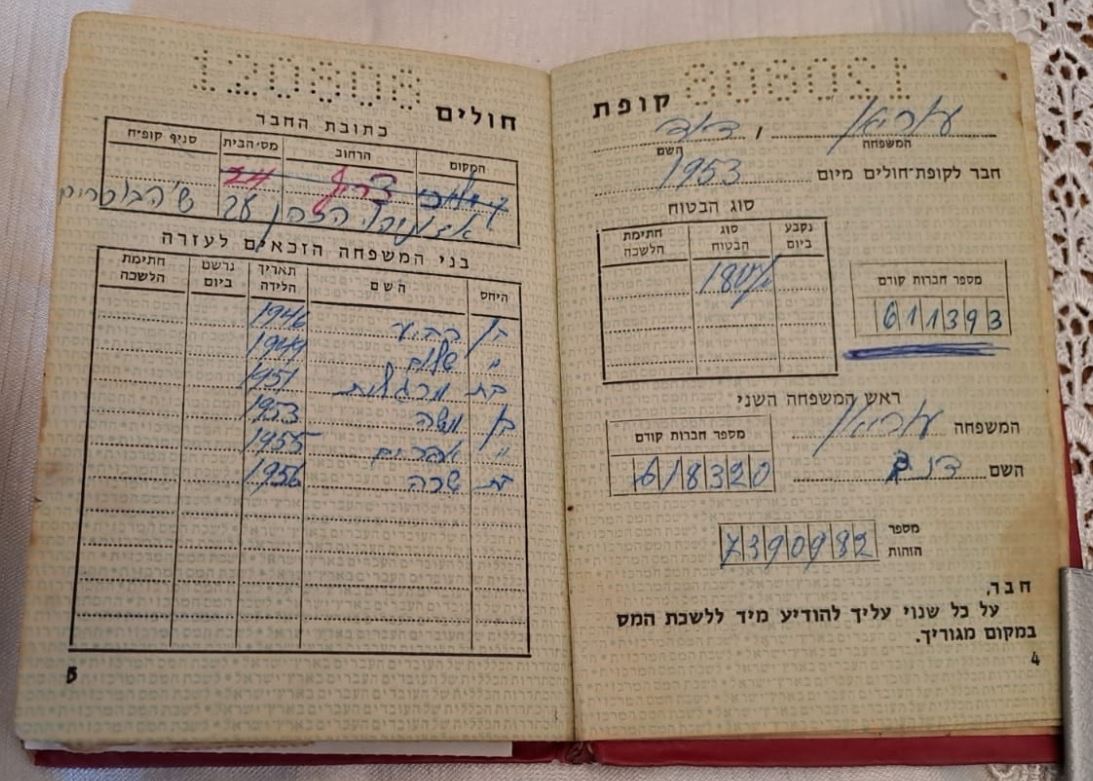 120808
קופת
המשפחה עזריאן , השם דוד
חבר לקופת-חולים מיום 1953
סוג הבטוח
נקבע ביום סוג הבטוח חתימת הלשכה
מספר חברות קודם
611393
ראש המשפחה השני
המשפחה עזריאן
השם
מספר חברות קודם
618320
מספר הזהות
7390982
חבר,
על כל שנוי עליך להודיע מיד ללשכת המס
במקום מגוריך.
4
120808
חולים
כתובת החבר
המקום הרחוב מס׳הבית סניף קופ״ח
בני המשפחה הזכאים לעזרה
היחס השם תאריך הלידה נרשם ביום חתימת הלשכה
בן 1946
" שלום 1949
בת מרגלית 1951
בן משה 1953
" אפרים 1955
בת שרה 1956
5